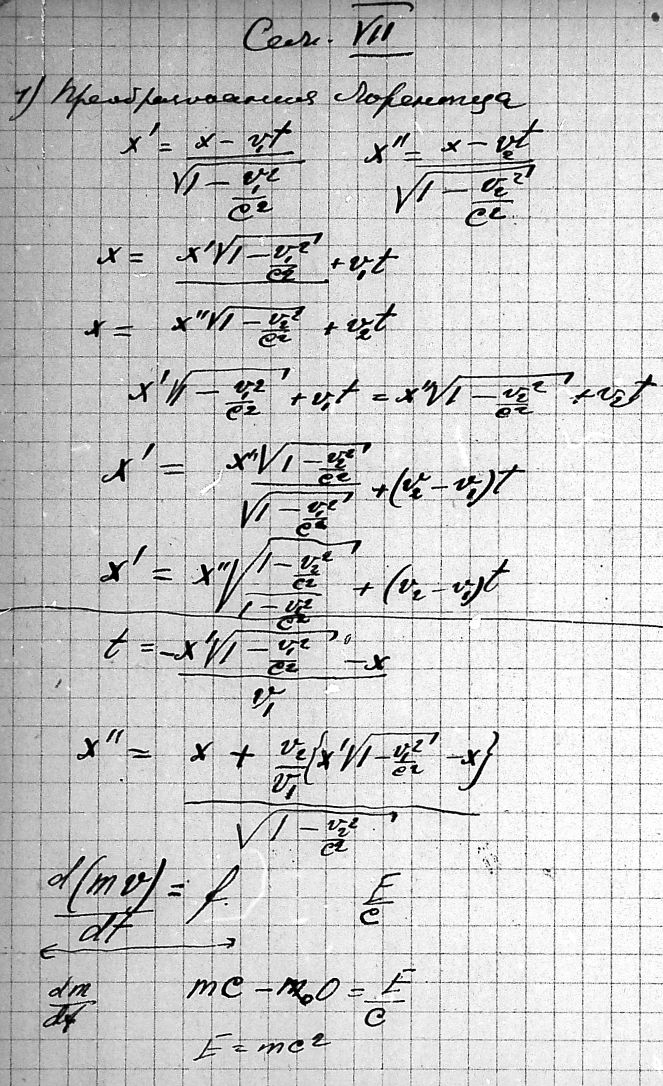 Сем. VII
1) Преобразования Лоренца
x' = (x - v₁t) / √(1 - v₁²/c²)    x'' = (x - v₂t) / √(1 - v₂²/c²)
x = x'√(1 - v₁²/c²) + v₁t
x = x''√(1 - v₂²/c²) + v₂t
x'√(1 - v₁²/c²) + v₁t = x''√(1 - v₂²/c²) + v₂t
x' = x''√(1 - v₂²/c²) / √(1 - v₁²/c²) + (v₂ - v₁)t
x' = x''√((1 - v₂²/c²) / (1 - v₁²/c²)) + (v₂ - v₁)t
t = (-x'√(1 - v₁²/c²) - x) / v₁
x'' = (x + v₂/v₁{x'√(1 - v₁²/c²) - x}) / √(1 - v₂²/c²)
d(mv)/dt = f    E/c
dm/dt    mc - m₀0 = E/c
E = mc²